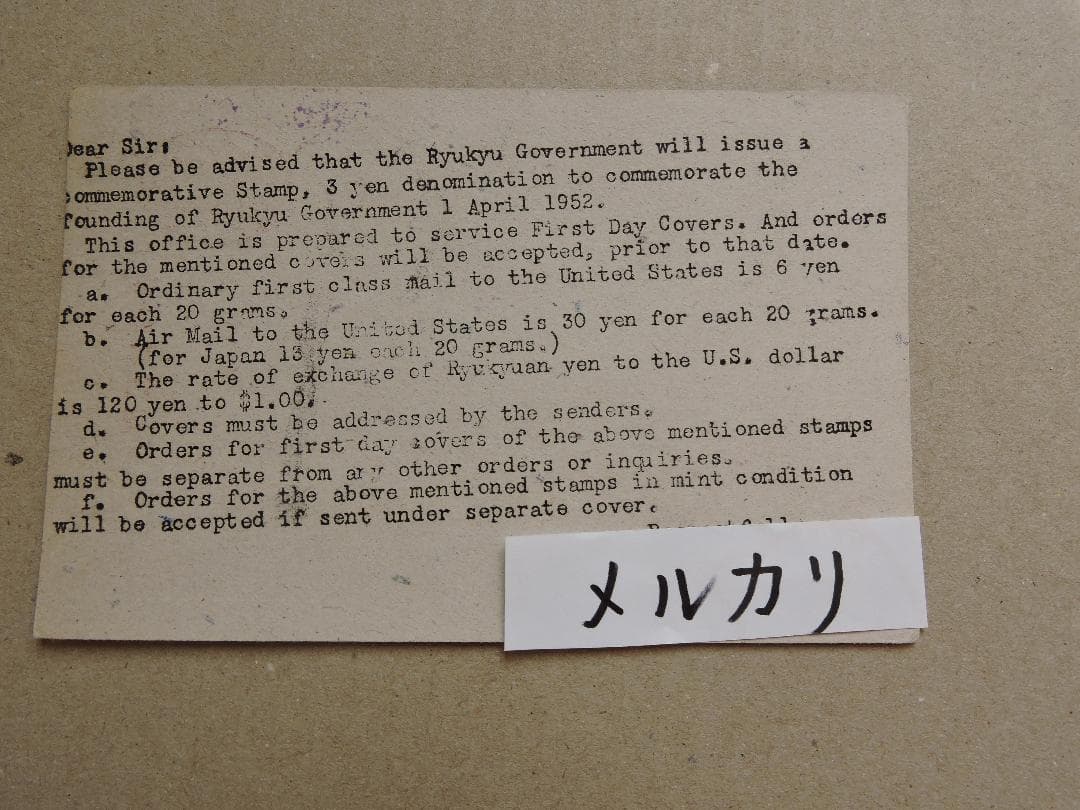 Dear Sir:
Please be advised that the Ryukyu Government will issue a
commemorative Stamp, 3 yen denomination to commemorate the
founding of Ryukyu Government 1 April 1952.
This office is prepared to service First Day Covers. And orders
for the mentioned covers will be accepted, prior to that date.
a. Ordinary first class mail to the United States is 6 yen
for each 20 grams.
b. Air Mail to the United States is 30 yen for each 20 grams.
(for Japan 13 yen each 20 grams.)
c. The rate of exchange of Ryukyuan yen to the U.S. dollar
is 120 yen to $1.00.
d. Covers must be addressed by the senders.
e. Orders for first day covers of the above mentioned stamps
must be separate from any other orders or inquiries.
f. Orders for the above mentioned stamps in mint condition
will be accepted if sent under separate cover.
メルカリ